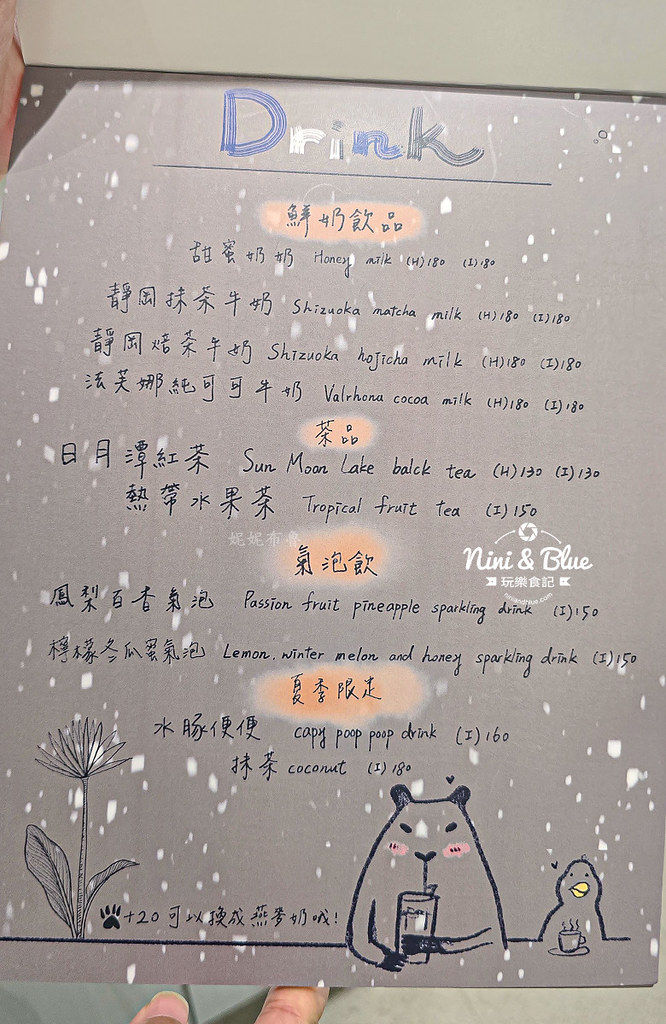 Drink
鮮奶飲品
甜蜜奶奶 Honey milk (H)180 (I)180
靜岡抹茶牛奶 Shizuoka matcha milk (H)180 (I)180
靜岡焙茶牛奶 Shizuoka hojicha milk (H)180 (I)180
法芙娜純可可牛奶 Valrhona cocoa milk (H)180 (I)180
茶品
日月潭紅茶 Sun Moon Lake balck tea (H)130 (I)130
熱帶水果茶 Tropical fruit tea (I)150
妮妮布魯
氣泡飲
Nini & Blue
玩樂食記
niniandblue.com
鳳梨百香氣泡 Passion fruit pineapple sparkling drink (I)150
檸檬冬瓜蜜氣泡 Lemon, winter melon and honey sparkling drink (I)150
夏季限定
水豚便便 capy poop poop drink (I)160
抹茶 coconut (I)180
+20可以換成燕麥奶哦!